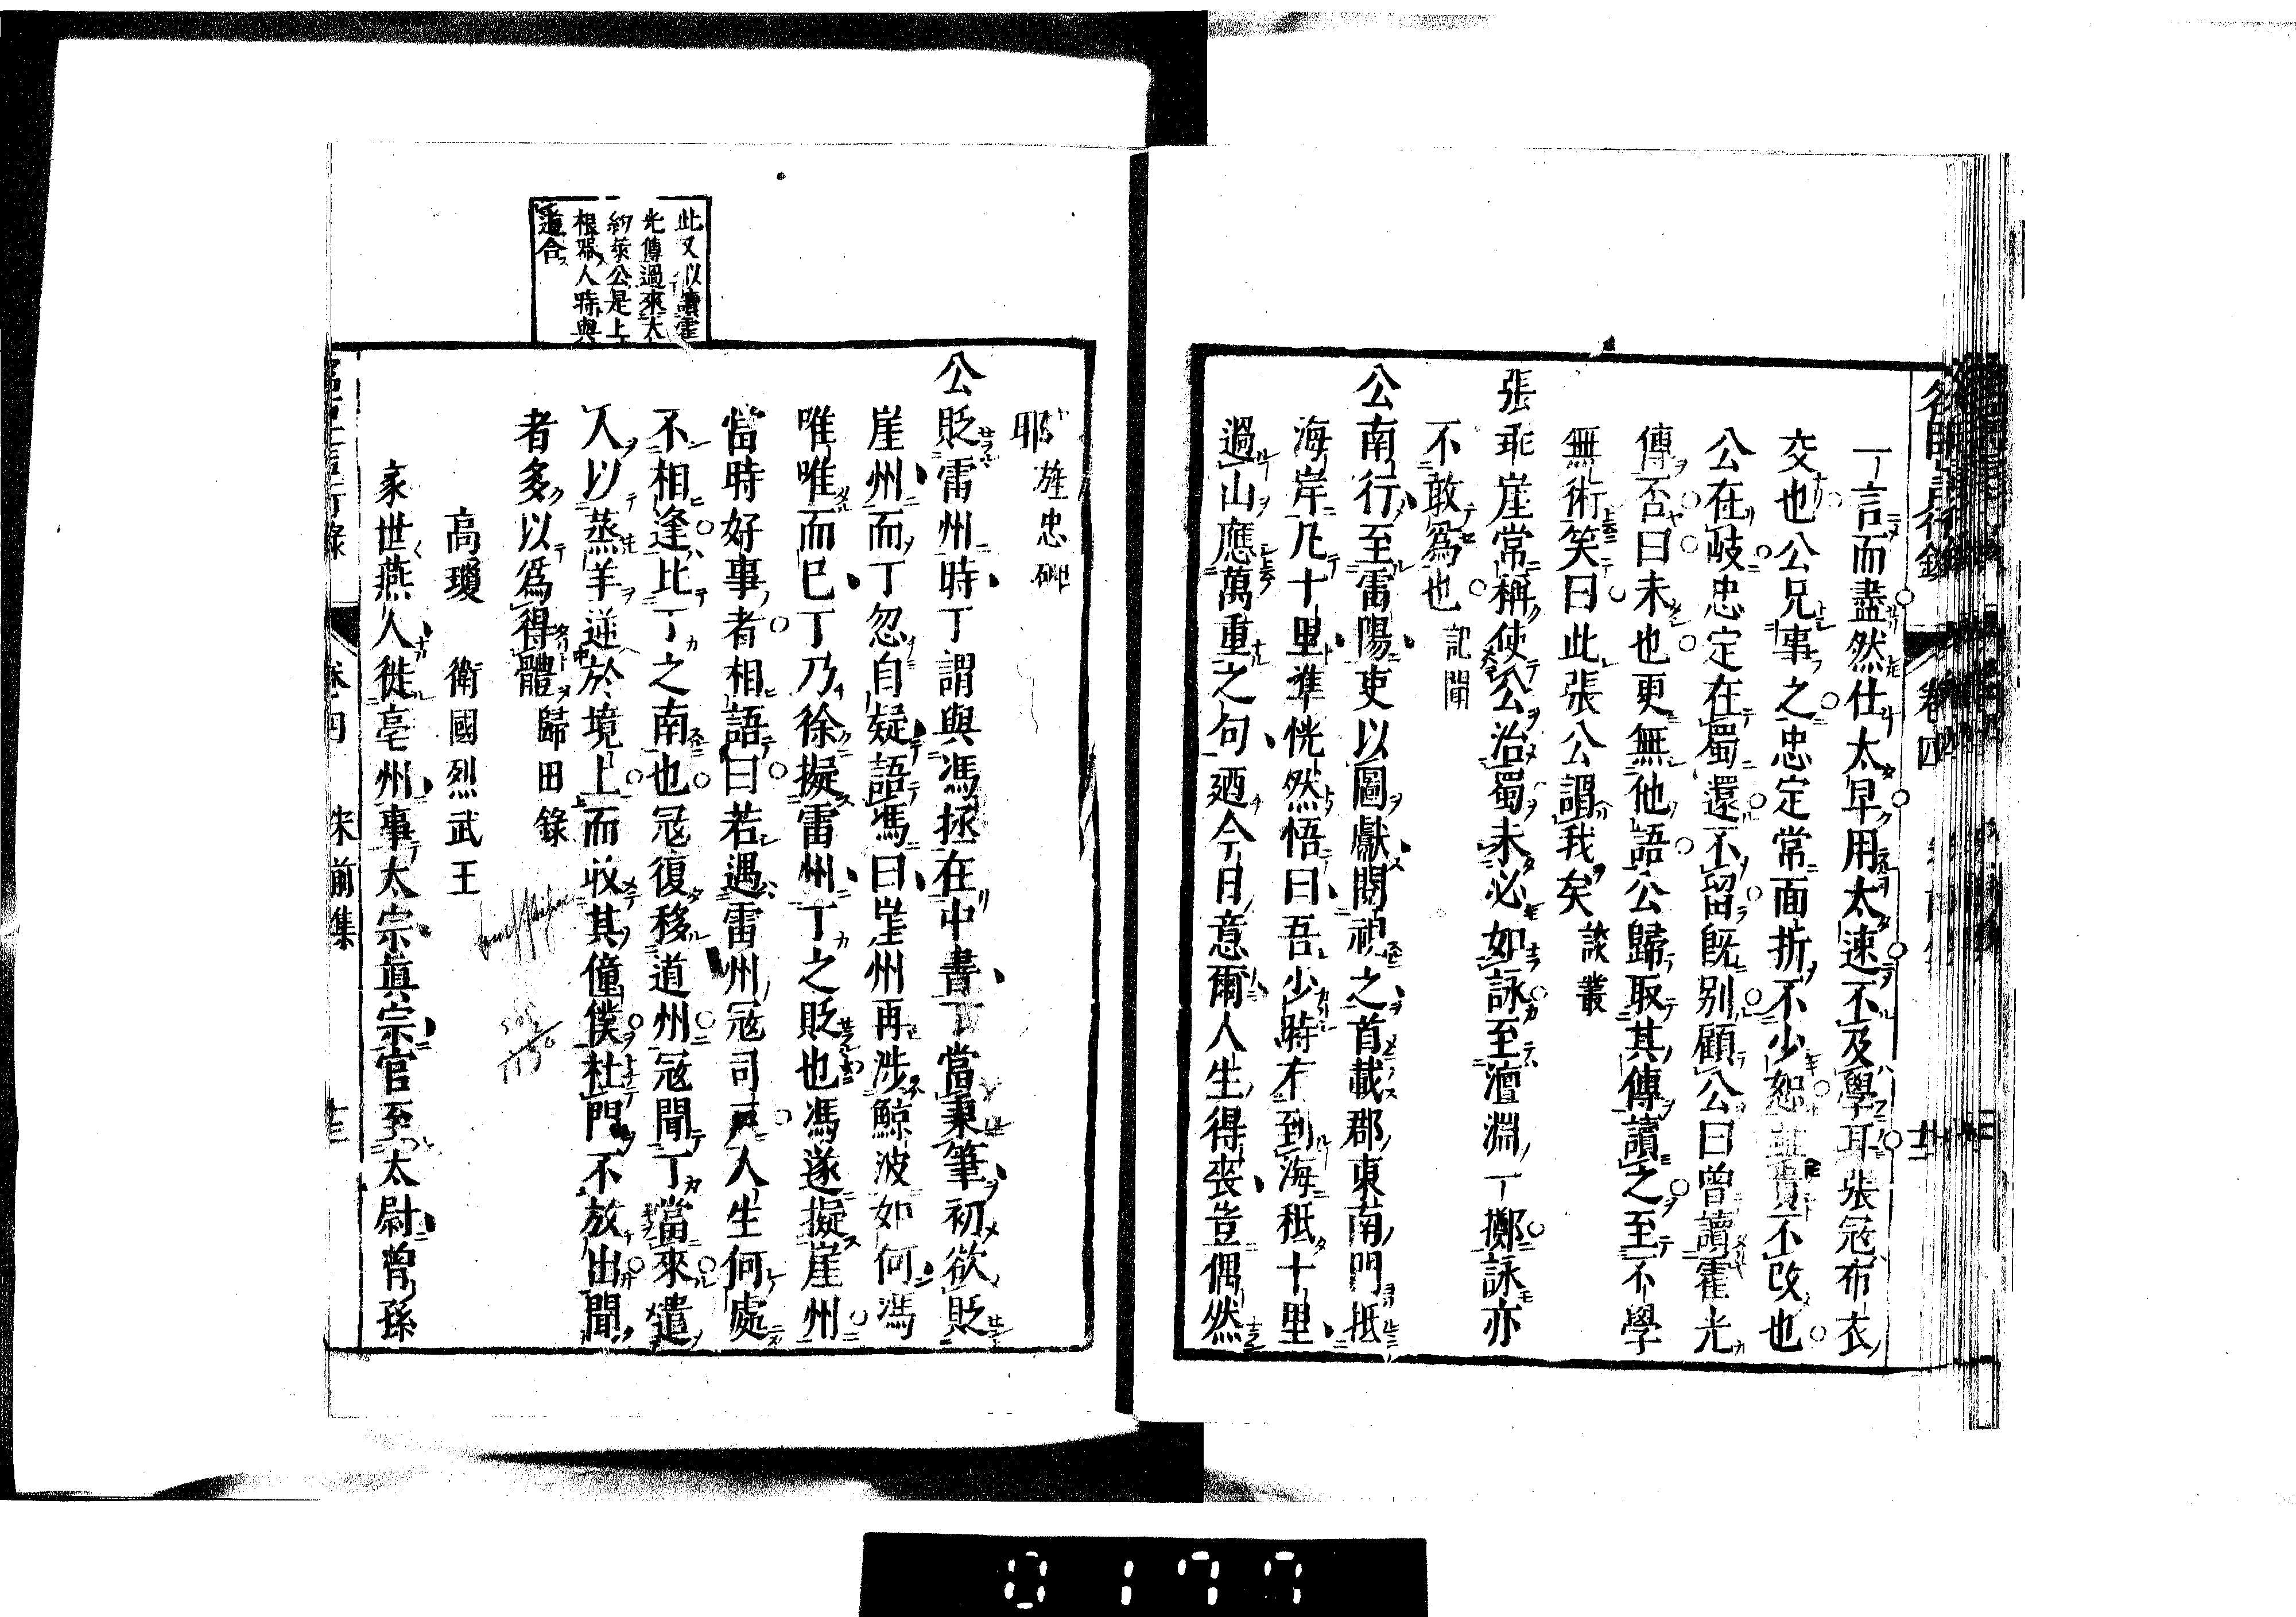 名臣言行錄 卷四
一言而盡然仕太早用太速不及學耳張寇布衣
交也公兄事之忠定常面折不少恕雖貴不改也
公在岐忠定在蜀還不留既別顧公曰曾讀霍光
傳否曰未也更無他語公歸取其傳讀之至不學
無術笑曰此張公謂我矣 談叢
張乖崖常稱使公治蜀未必如詠至澶淵一擲詠亦
不敢為也 記聞
公南行至雷陽吏以圖獻閱視之首載郡東南門抵
海岸凡十里準恍然悟曰吾少時有到海秪十里
過山應萬重之句廼今日意爾人生得喪豈偶然
耶 旌忠碑
公貶雷州時丁謂與馮拯在中書丁當秉筆初欲貶
崖州而丁忽自疑語馮曰崖州再涉鯨波如何馮
唯唯而已丁乃徐擬雷州丁之貶也馮遂擬崖州
當時好事者相語曰若遇雷州寇司戶人生何處
不相逢比丁之南也寇復移道州寇聞丁當來遣
人以蒸羊逆於境上而收其僮僕杜門不放出聞
者多以為得體 歸田錄
高瓊 衛國烈武王
家世燕人徙亳州事太宗真宗官至太尉曾孫
此又以讀霍
光傳過來大
約萊公是上
根器人時與
道合
言行錄 卷四 宋前集 十三
0177